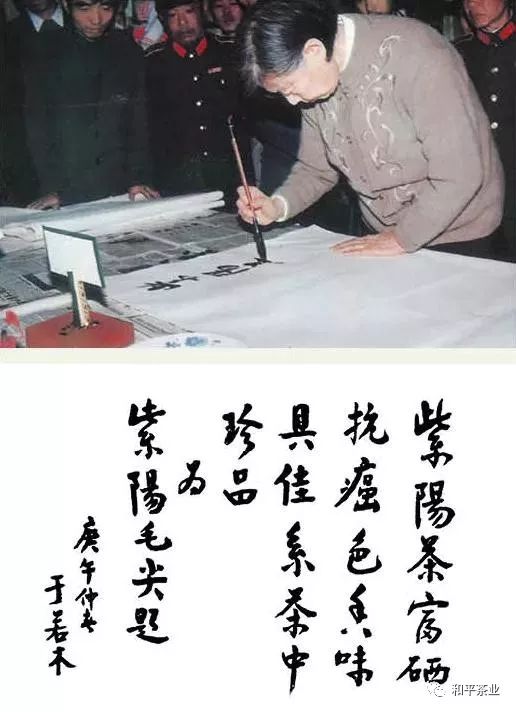 紫陽茶富硒
抗癌色香味
具佳系茶中
珍品
为
紫陽毛尖题
庚午仲春
于若木
和平茶业